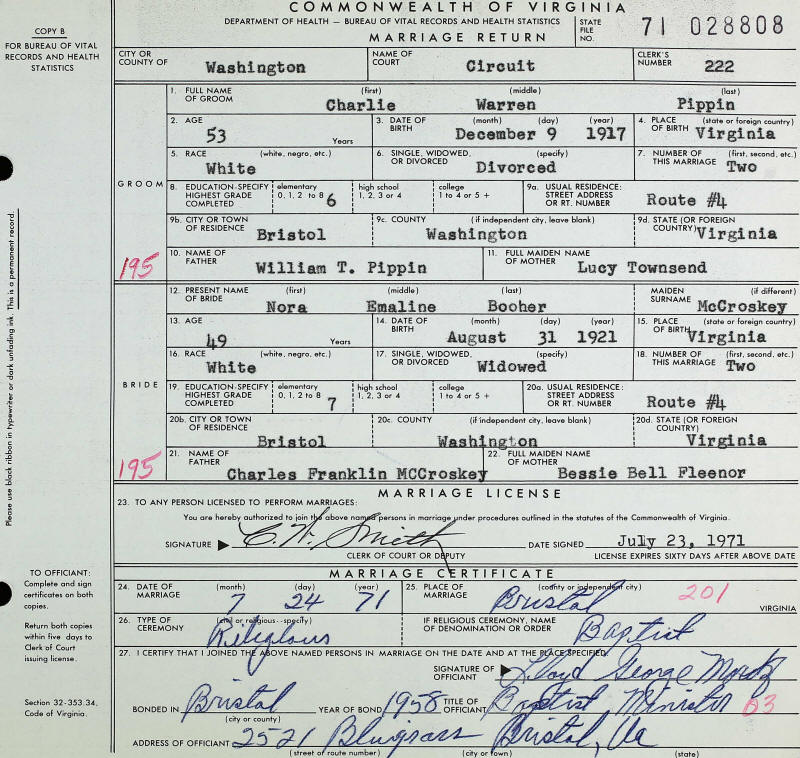 COMMONWEALTH OF VIRGINIA
DEPARTMENT OF HEALTH — BUREAU OF VITAL RECORDS AND HEALTH STATISTICS
MARRIAGE RETURN
STATE FILE NO. 71 028808
COPY B
FOR BUREAU OF VITAL RECORDS AND HEALTH STATISTICS
CITY OR COUNTY OF Washington NAME OF COURT Circuit CLERK'S NUMBER 222
GROOM
1. FULL NAME OF GROOM (first) Charlie (middle) Warren (last) Pippin
2. AGE 53 Years 3. DATE OF BIRTH (month) (day) (year) December 9 1917 4. PLACE OF BIRTH (state or foreign country) Virginia
5. RACE (white, negro, etc.) White 6. SINGLE, WIDOWED, OR DIVORCED (specify) Divorced 7. NUMBER OF THIS MARRIAGE (first, second, etc.) Two
8. EDUCATION-SPECIFY HIGHEST GRADE COMPLETED elementary 0, 1, 2 to 8 6 high school 1, 2, 3 or 4 college 1 to 4 or 5 + 9a. USUAL RESIDENCE: STREET ADDRESS OR RT. NUMBER Route #4
9b. CITY OR TOWN OF RESIDENCE Bristol 9c. COUNTY (if independent city, leave blank) Washington 9d. STATE (OR FOREIGN COUNTRY) Virginia
195
10. NAME OF FATHER William T. Pippin 11. FULL MAIDEN NAME OF MOTHER Lucy Townsend
BRIDE
12. PRESENT NAME OF BRIDE (first) Nora (middle) Emaline (last) Booher MAIDEN SURNAME (if different) McCroskey
13. AGE 49 Years 14. DATE OF BIRTH (month) (day) (year) August 31 1921 15. PLACE OF BIRTH (state or foreign country) Virginia
16. RACE (white, negro, etc.) White 17. SINGLE, WIDOWED, OR DIVORCED (specify) Widowed 18. NUMBER OF THIS MARRIAGE (first, second, etc.) Two
19. EDUCATION-SPECIFY HIGHEST GRADE COMPLETED elementary 0, 1, 2 to 8 7 high school 1, 2, 3 or 4 college 1 to 4 or 5 + 20a. USUAL RESIDENCE: STREET ADDRESS OR RT. NUMBER Route #4
20b. CITY OR TOWN OF RESIDENCE Bristol 20c. COUNTY (if independent city, leave blank) Washington 20d. STATE (OR FOREIGN COUNTRY) Virginia
195
21. NAME OF FATHER Charles Franklin MCCroskey 22. FULL MAIDEN NAME OF MOTHER Bessie Bell Fleenor
Please use black ribbon in typewriter or dark unfading ink. This is a permanent record.
MARRIAGE LICENSE
23. TO ANY PERSON LICENSED TO PERFORM MARRIAGES:
You are hereby authorized to join the above named persons in marriage under procedures outlined in the statutes of the Commonwealth of Virginia.
SIGNATURE C. W. Smith DATE SIGNED July 23, 1971
CLERK OF COURT OR DEPUTY LICENSE EXPIRES SIXTY DAYS AFTER ABOVE DATE
MARRIAGE CERTIFICATE
TO OFFICIANT:
Complete and sign certificates on both copies.
Return both copies within five days to Clerk of Court issuing license.
Section 32-353.34, Code of Virginia.
24. DATE OF MARRIAGE (month) (day) (year) 7 24 71 25. PLACE OF MARRIAGE (county or independent city) Bristol 201 VIRGINIA
26. TYPE OF CEREMONY (civil or religious--specify) Religious IF RELIGIOUS CEREMONY, NAME OF DENOMINATION OR ORDER Baptist
27. I CERTIFY THAT I JOINED THE ABOVE NAMED PERSONS IN MARRIAGE ON THE DATE AND AT THE PLACE SPECIFIED.
SIGNATURE OF OFFICIANT Lloyd George
BONDED IN Bristol (city or county) YEAR OF BOND 1958 TITLE OF OFFICIANT Baptist Minister 03
ADDRESS OF OFFICIANT 2521 Blugrass Bristol, Va
(street or route number) (city or town) (state)